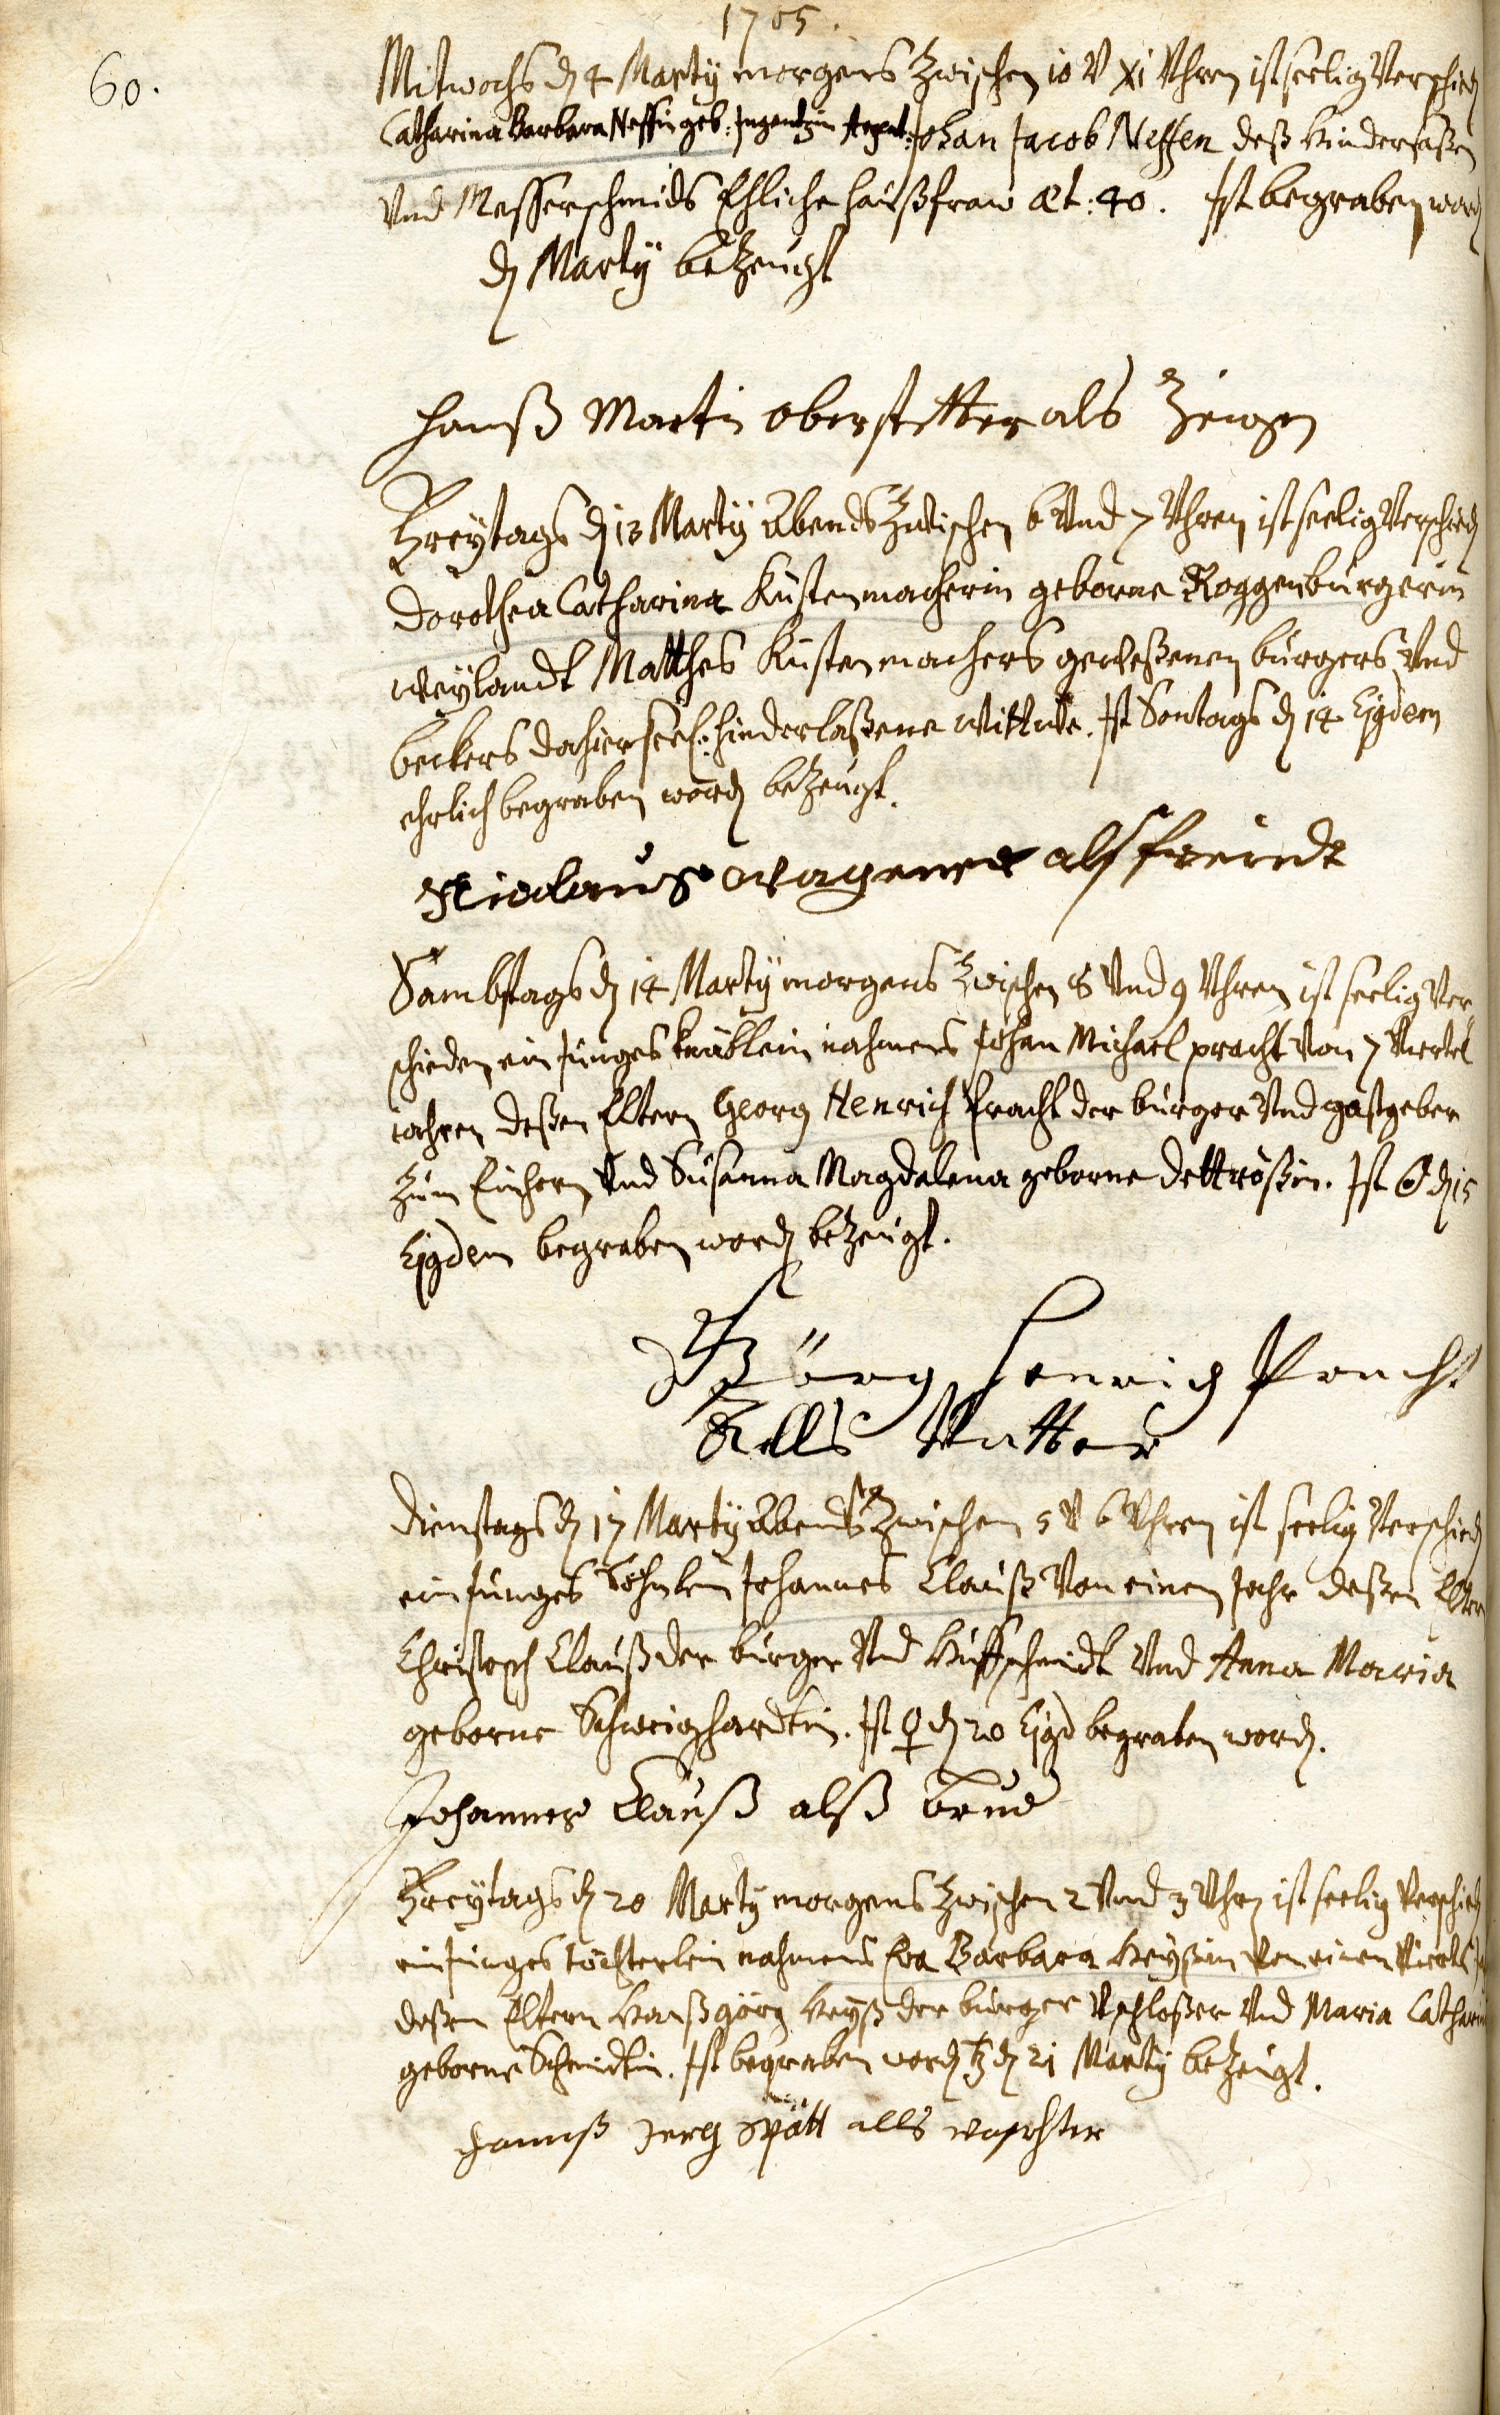 1705.
60.
Mitwochs dn 4 Martÿ morgens zwischen 10 V XI Uhren ist seelig Verschiedn
Catharina Barbara Neffin geb: Johan Jacob Neffen deß hindersaßen
Und Messerschmids Ehliche haußfraw æt: 40. Ist begraben wordn
dn Martÿ bezeugt
Hanß Martin oberstetter als Zeugen
Freytags dn 13 Martÿ Abends Zwischen 6 Und 7 Uhren ist seelig Verschiedn
Dorothea Catharina Küstenmacherin geborne Roggenbürgerin
Weylandt Matthes Küstenmachers geweßenen bürgers Und
beckers dahier seel: hinderlaßene Wittwe. Ist Sontags dn 14 Ejgdem
ehrlich begraben wordn bezeugt.
Nicolaus wagener als freündt
Sambstags dn 14 Martÿ morgens Zwischen 8 Und 9 Uhren ist seelig Ver
schieden, ein junges knäblein nahmens Johan Michael pracht Von 7 Viertel
iahren deßen Eltern Georg Henrich Pracht der bürger Und gastgeber
zum Einhorn, Und Susanna Magdalena geborne Dettrößin. Ist ☉ dn 15
Ejgdem begraben wordn bezeugt.
Görg Henrich Pracht
Alls Vatter
Dienstags dn 17 Martÿ Abends Zwischen 5 V 6 Uhren ist seelig Verschiedn
ein junges Söhnlein Johannes Clauß Von einem Jahr deßen Eltern
Christoph Clauß der bürger Und Huffschmidt Und Anna Maria
geborne Schweighardtin. Ist ♀ dn 20 Ejgd begraben wordn.
Johannes Clauß alß brud
Freytags dn 20 Martÿ morgens zwischen 2 Und 3 Uhrn ist seelig Verschiedn
ein junges töchterlein nahmens Eva Barbara Heyßin Von einem Viertel
deßen Eltern Hanß görg Heyß der bürger V schloßer Und Maria Catharin
geborne Schmidtin. Ist begraben wordn ♄ dn 21 Martÿ bezeugt.
Hannß Jerg Spätt alls